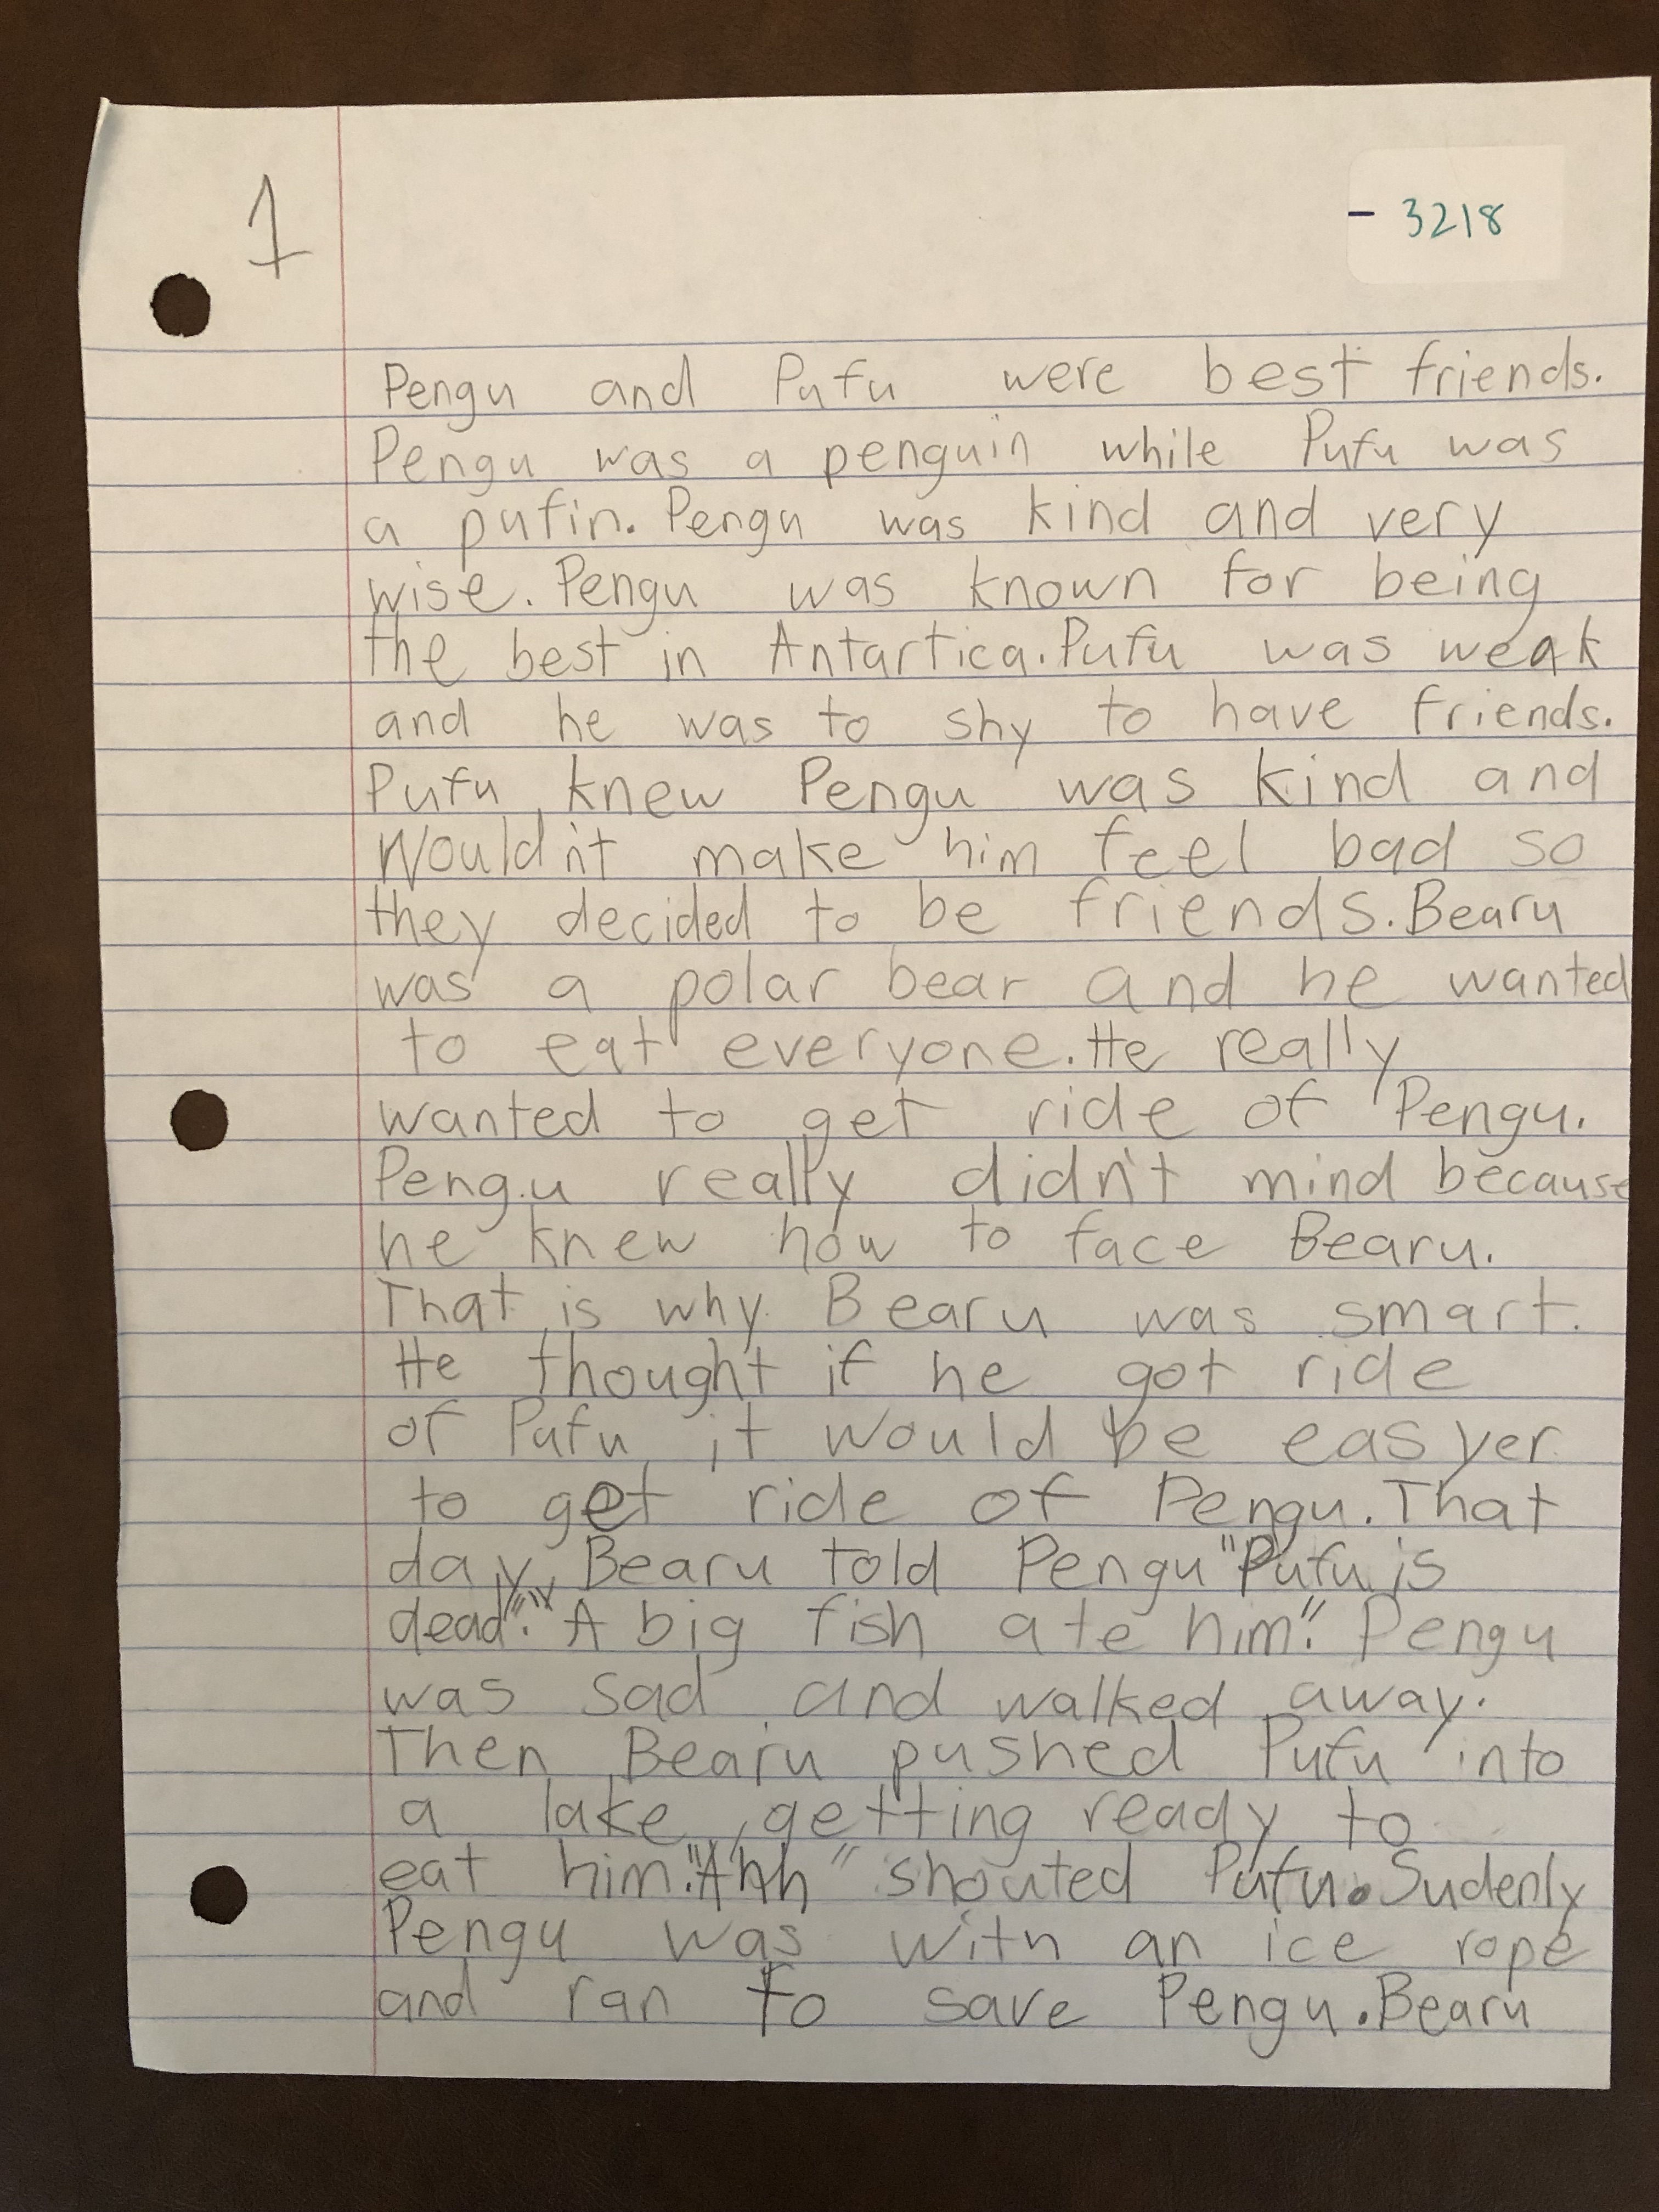 1
- 3218
Pengu and Pufu were best friends.
Pengu was a penguin while Pufu was
a pufin. Pengu was kind and very
wise. Pengu was known for being
the best in Antartica. Pufu was weak
and he was to shy to have friends.
Pufu knew Pengu was kind and
Would'nt make him feel bad so
they decided to be friends. Bearu
was a polar bear and he wanted
to eat everyone. He really
wanted to get ride of Pengu.
Pengu really didn't mind because
he knew how to face Bearu.
That is why Bearu was smart.
He thought if he got ride
of Pufu it would be easyer
to get ride of Pengu. That
day, Bearu told Pengu "Pufu is
dead". "A big fish ate him". Pengu
was sad and walked away.
Then Bearu pushed Pufu into
a lake, getting ready to
eat him. "Ahh" shouted Pufu. Sudenly
Pengu was with an ice rope
and ran to save Pengu. Bearu